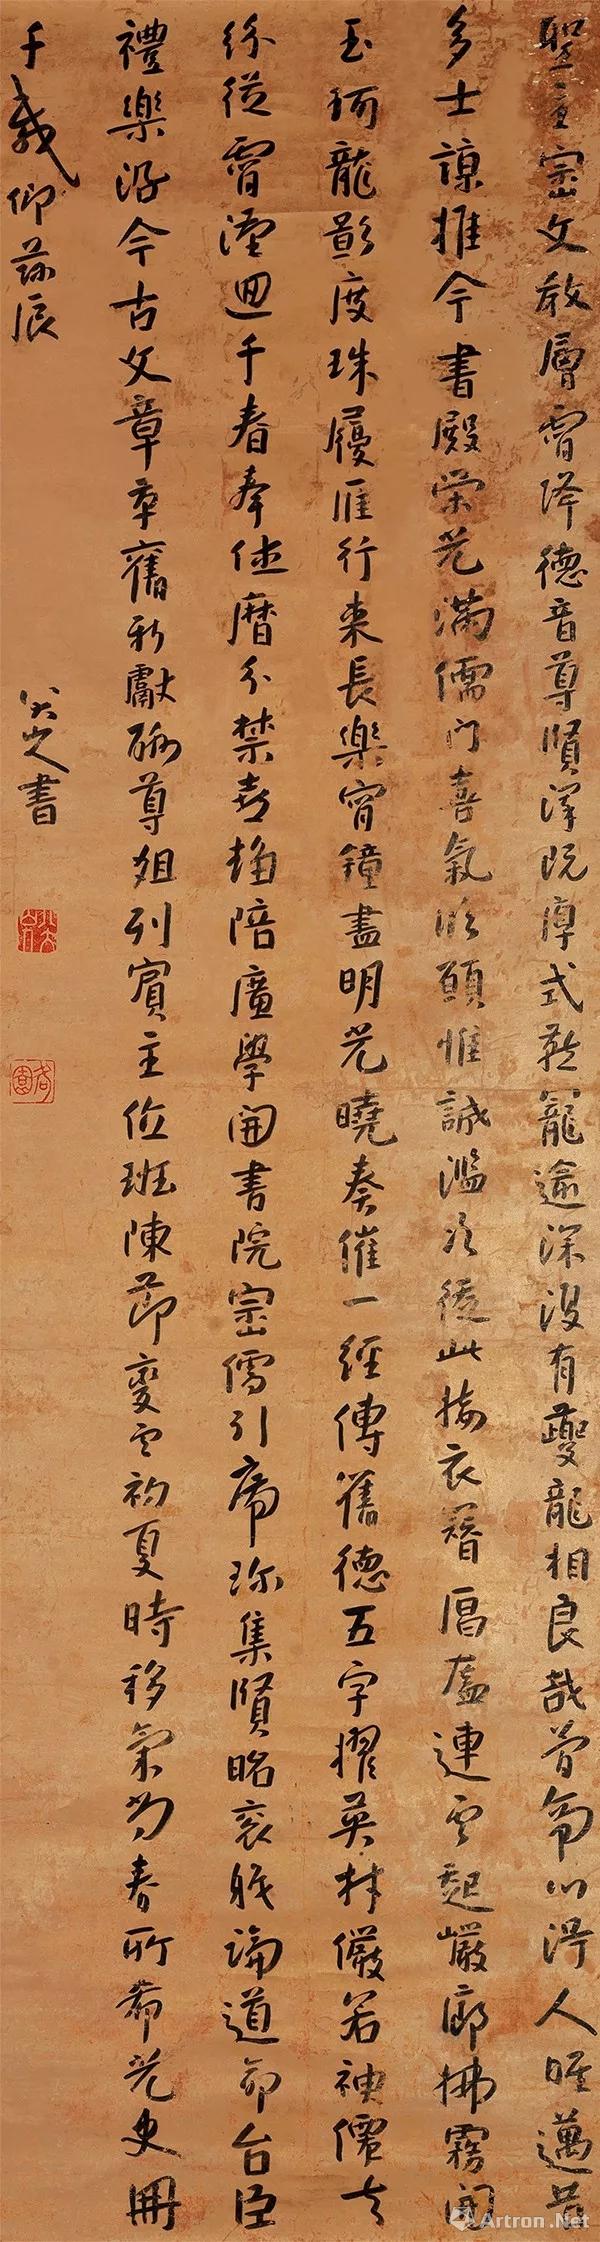 聖主崇文教層霄降德音尊賢澤既厚式燕寵逾深沒有夔龍相良哉簡帝心得人唯邁昔
多士諒推今書殿榮光滿儒門喜氣臨顧惟誠濫吹徒此接衣簪連雲起巖廊拂霧開
玉珂龍影度珠履雁行來長樂宵鐘盡明光曉奏催一經傳舊德五字擢英材儼若神僊去
紛從霄漢迴千春奉休曆分禁喜趨陪廣學開書院崇儒引席珍集賢昭袞職論道命台臣
禮樂沿今古文章革舊新獻酬尊俎列賓主位班陳節變雲初夏時移氣尚春所希光史冊
千載仰茲辰
八大山人書
Artron.Net